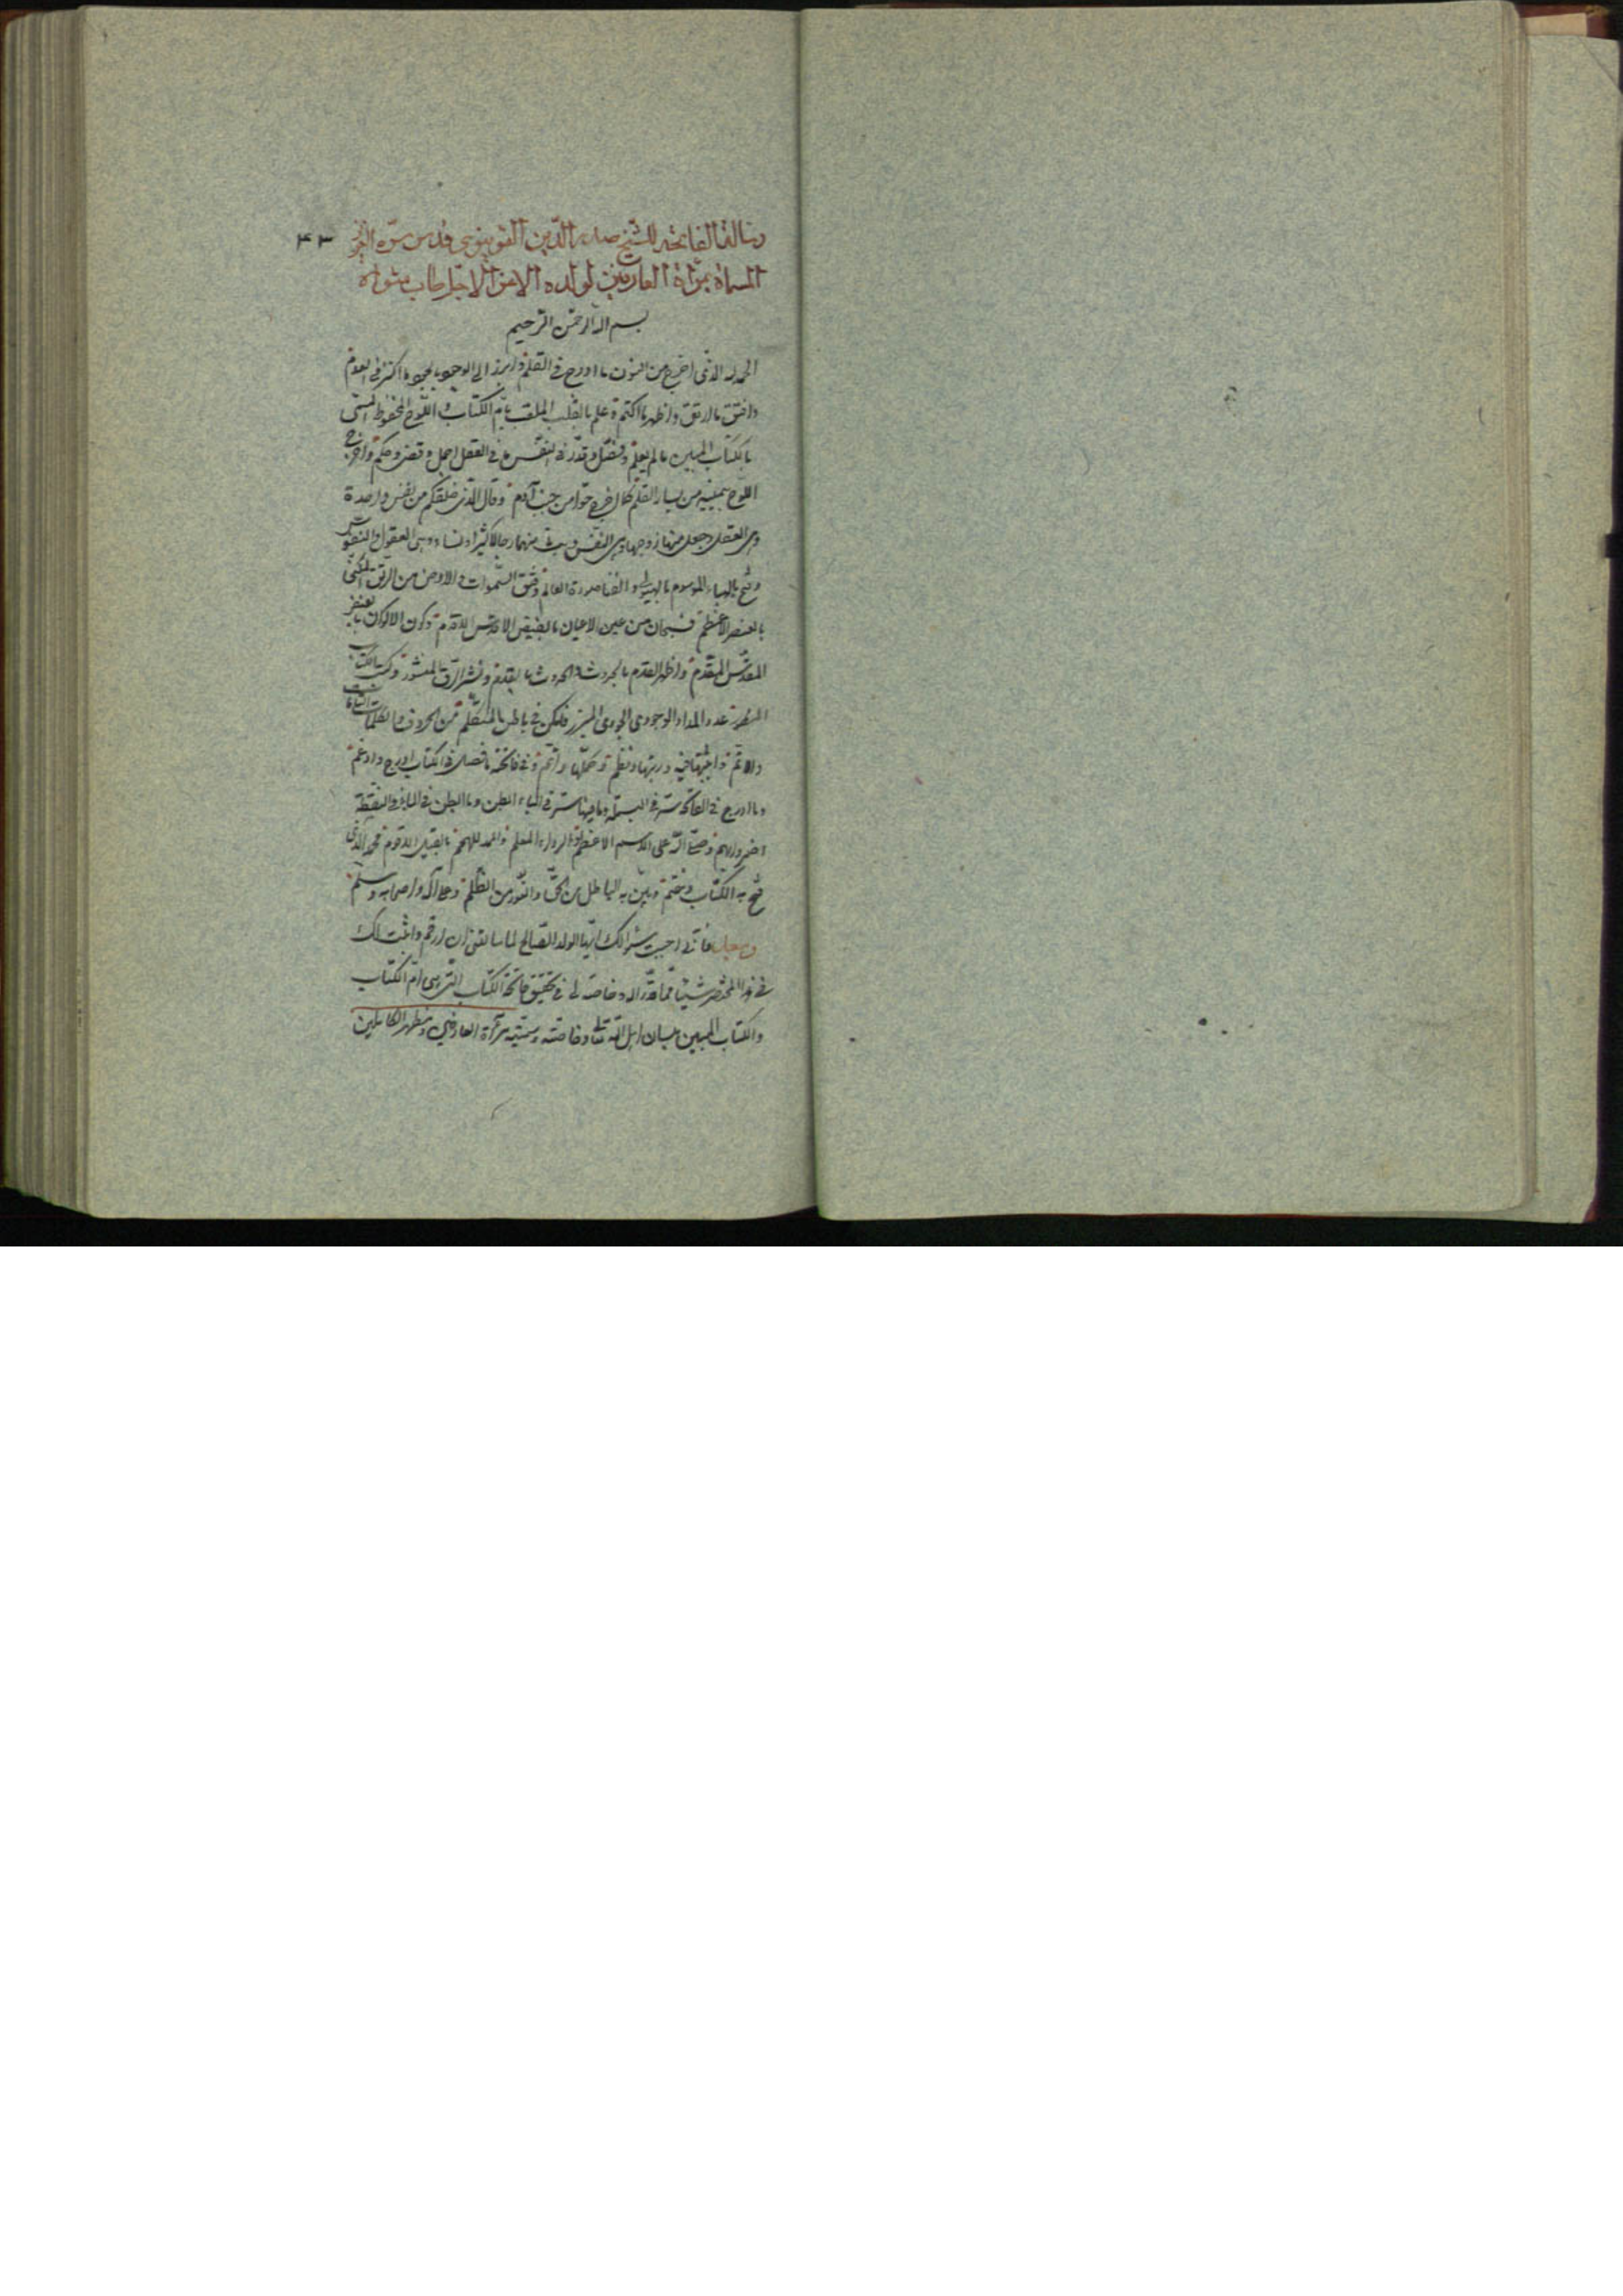 رسالة الفاتحة للشيخ صدر الدين القونيوي قدس سره العزيز ٤٣
المسماة بمرآة العارفين لولده الاعز الاجل طاب مثواه
بسم الله الرحمن الرحيم
الحمد لله الذي اخرج من النون ما ادرج في القلم وابرز الى الوجود بالجود ما اكنز في العدم
وافتق ما ارتق واظهر ما اكتم علم بالقلب الملقب بام الكتاب و اللوح المحفوظ المسمى
بالكتاب المبين ما لم يعلم وفصل وقدر في النفس ما في العقل اجمل وقضى وحكم واخرج
اللوح بيمينه من يسار القلم كما اخرج حوا من جنب آدم وقال الذي خلقكم من نفس واحدة
وهي العقل وجعل منها زوجها وهي النفس وبث منهما رجالا كثيرا ونساء وهي العقول والنفوس
وفتح بالهباء الموسوم بالهيولى صورة العالم وفتق السموات و الارض من الرتق المكنى
بالعنصر الاعظم فسبحان من عين الاعيان بالفيض الاقدس الاقدم وكون الاكوان
المقدس المقدم واظهر القدم بالحدوث والحدوث بالقدم ونشر الرق المنشور وكتب الكتاب
المسطور المداد الوجودي الجودي في باطن المتكلم من الحروف والكلمات
ورتبها ونظم وكملها وتمم وفي فاتحة ما فصل في الكتاب ادرج وادغم
وما ادرج في الفاتحة ستر في البسملة وما فيها ستر في الباء ابطن وما ابطن في الباء في النقطة
اضمر وابهم وصلى الله على الاسم الاعظم والرداء المعلم والممد للهمم بالقيل الاقوم محمد الذي
فتح به الكتاب وختم وبين به الباطل من الحق والنور من الظلم وعلى آله واصحابه وسلم
وبعد فاني اجبت سؤالك ايها الولد الصالح لما سالتني ان ارقم واثبت لك
في هذا المختصر شيئا مما قدر الله وخاصة لي في تحقيق فاتحة الكتاب التي هي ام الكتاب
والكتاب المبين بلسان اهل الله تعالى وخاصته وسميته بمرآة العارفين ومظهر الكاملين